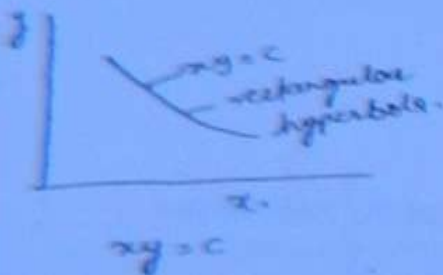 y
xy = c
rectangular
hyperbola.
x.
xy = c